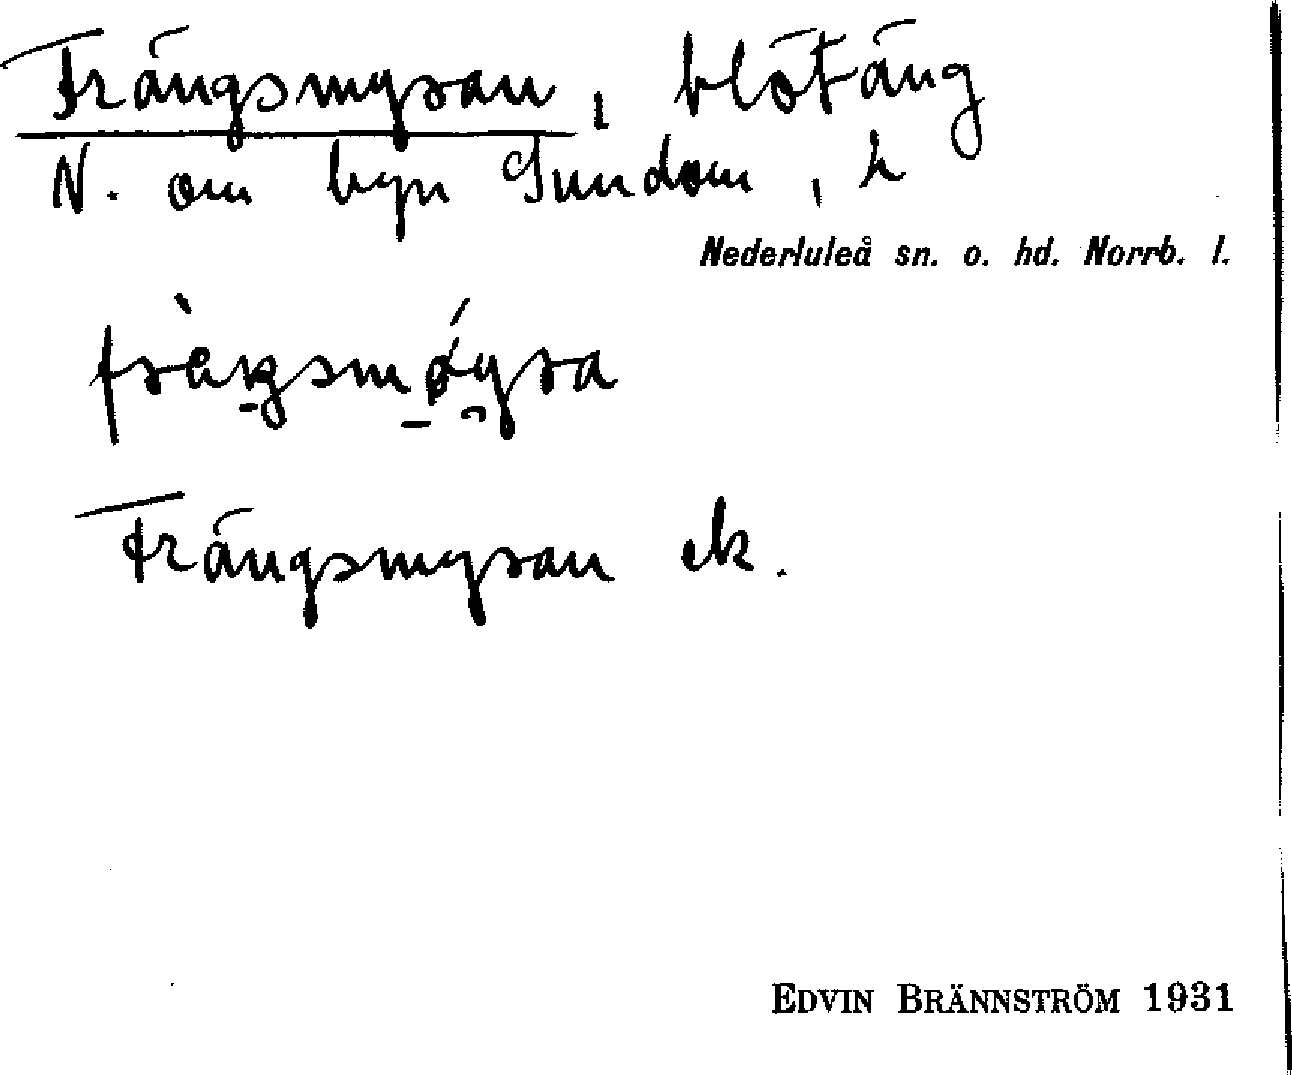 Trängsmyran, blötäng
N. om byn Sundom, h
Nederluleå sn. o. hd. Norrb. l.
Trängsmyran ek.
EDVIN BRÄNNSTRÖM 1931